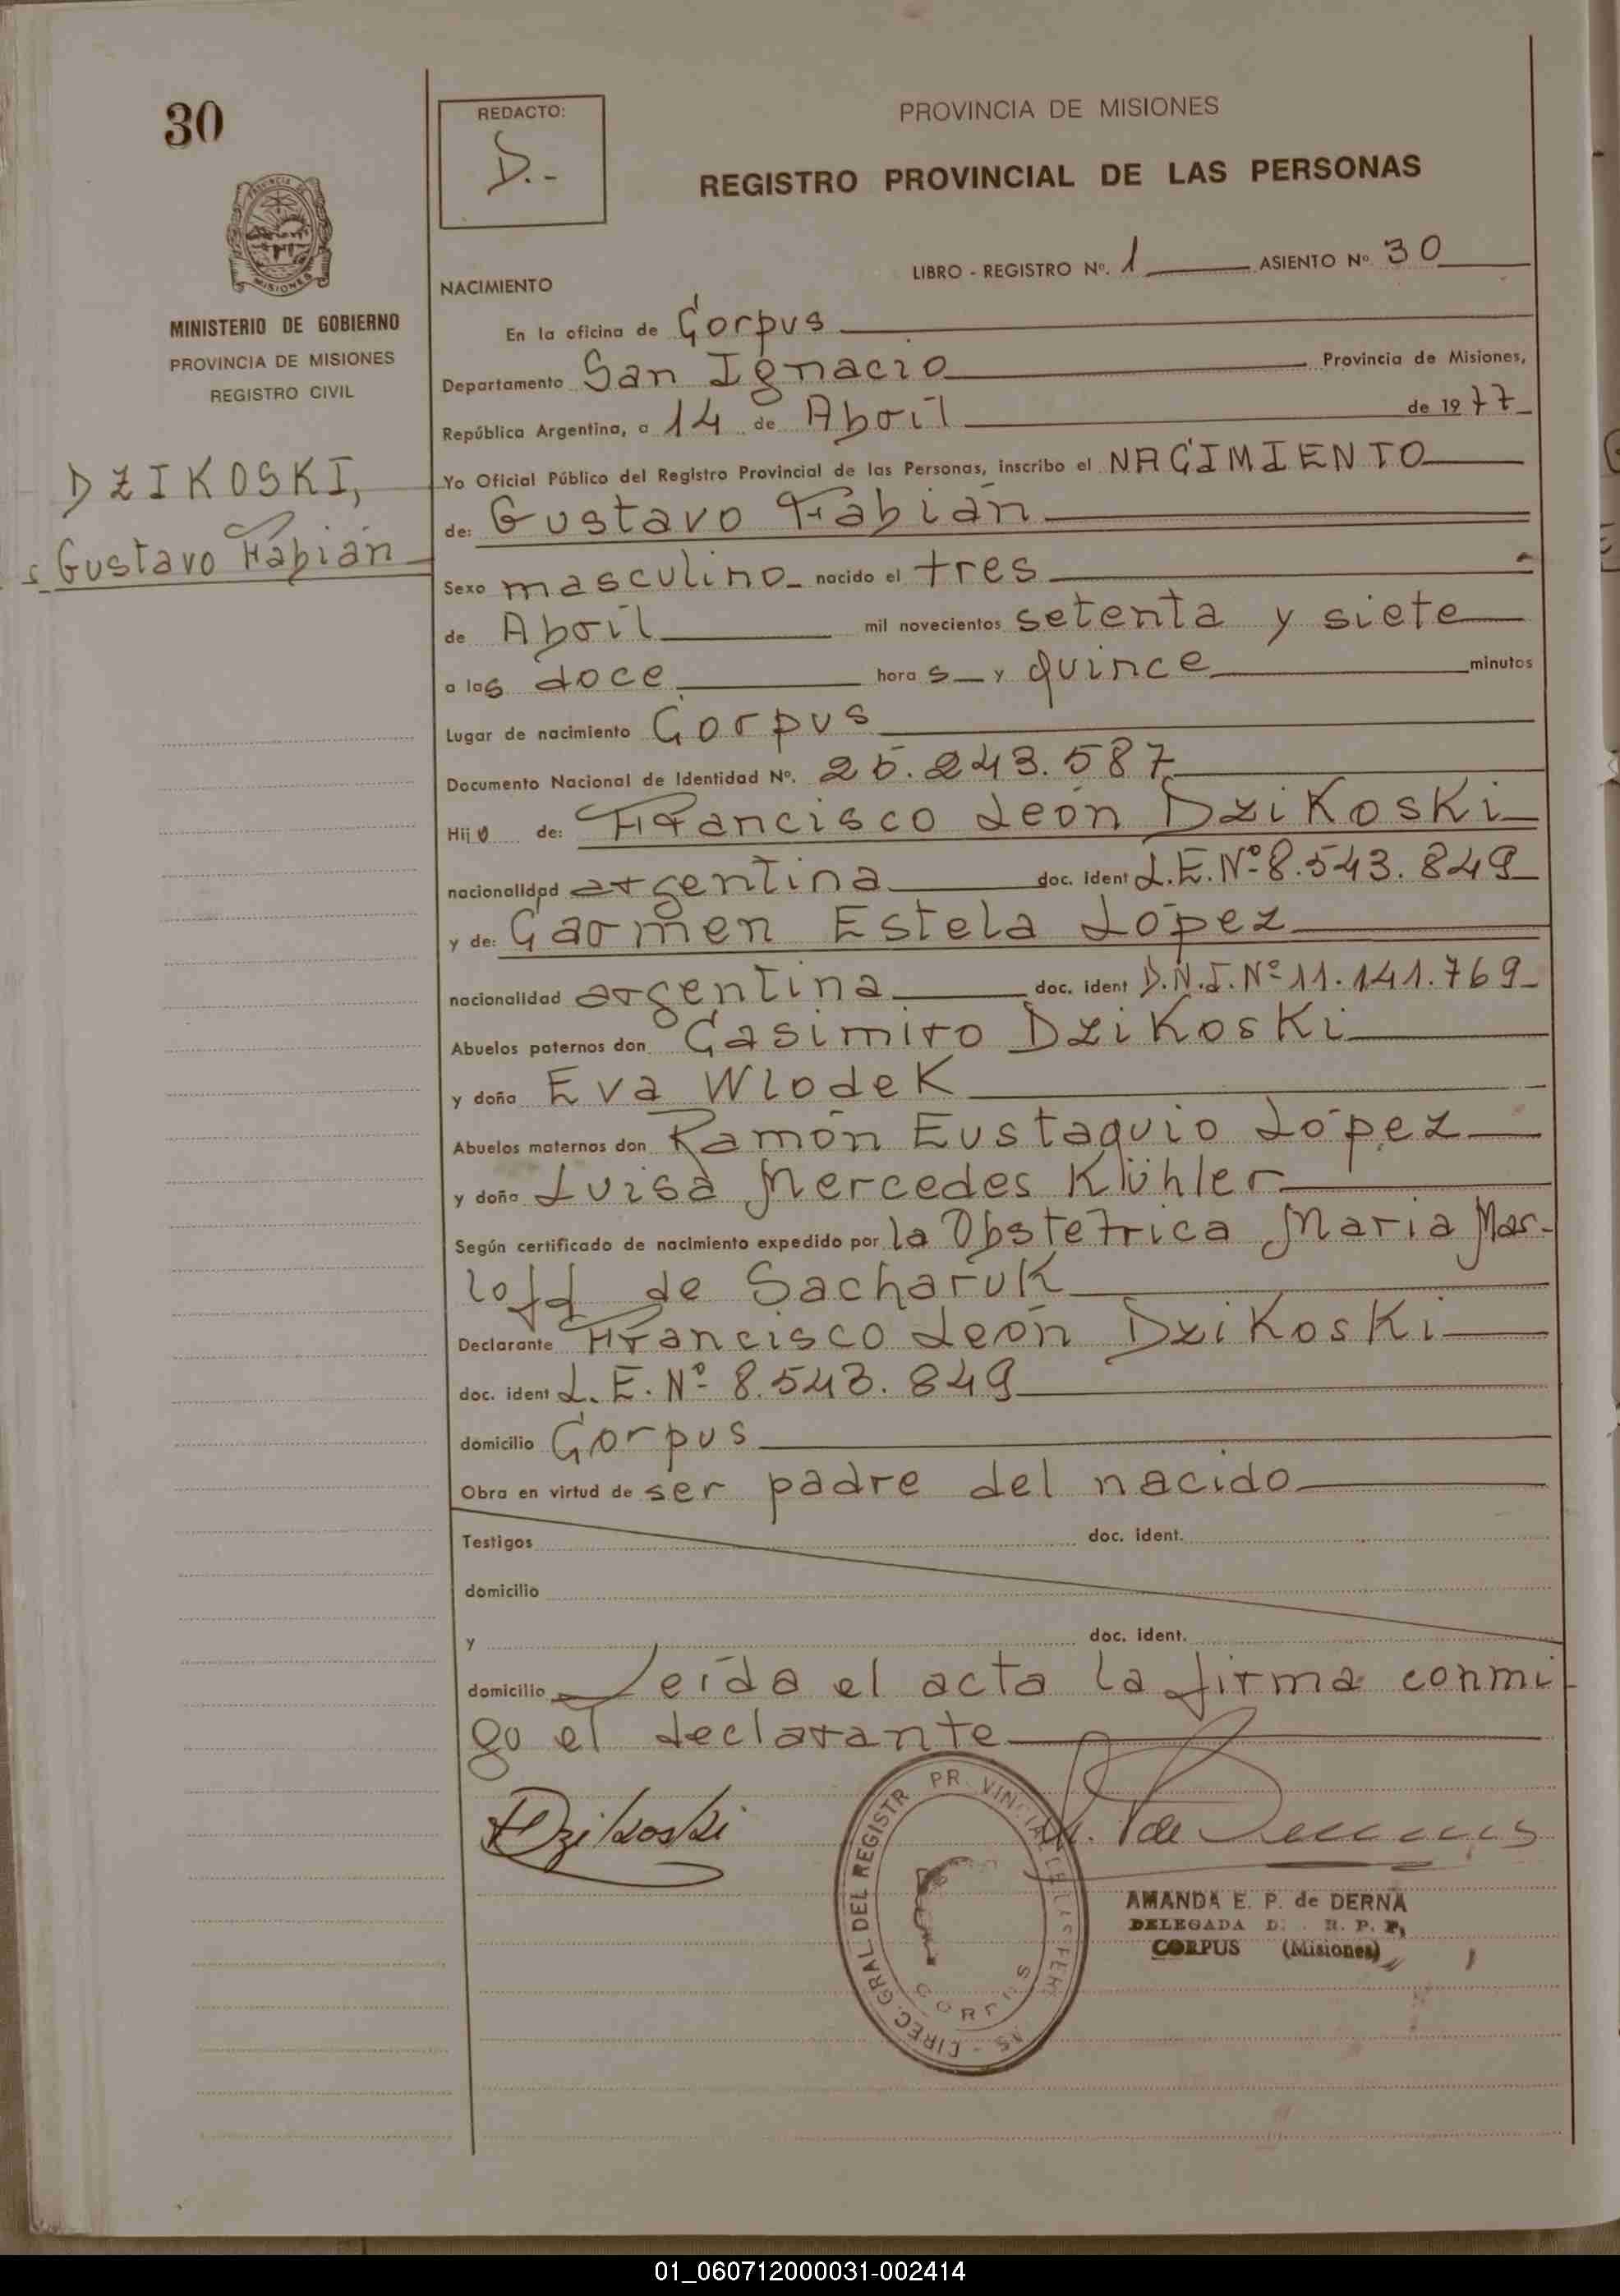 30
REDACTO:
D.-
PROVINCIA DE MISIONES
REGISTRO PROVINCIAL DE LAS PERSONAS
MINISTERIO DE GOBIERNO
PROVINCIA DE MISIONES
REGISTRO CIVIL
DZIKOSKI,
Gustavo Fabián
LIBRO - REGISTRO Nº. 1 ASIENTO Nº 30
NACIMIENTO
En la oficina de Corpus
Departamento San Ignacio Provincia de Misiones,
República Argentina, a 14 de Abril de 1977
Yo Oficial Público del Registro Provincial de las Personas, inscribo el NACIMIENTO
de: Gustavo Fabián
Sexo masculino nacido el tres
de Abril mil novecientos setenta y siete
a las doce horas y quince minutos
Lugar de nacimiento Corpus
Documento Nacional de Identidad Nº. 25.243.587
Hijo de: Francisco León Dzikoski
nacionalidad argentina doc. ident L.E.Nº 8.543.849
y de: Carmen Estela López
nacionalidad argentina doc. ident D.N.I.Nº 11.141.769
Abuelos paternos don Casimiro Dzikoski
y doña Eva Wlodek
Abuelos maternos don Ramón Eustaquio López
y doña Luisa Mercedes Kühler
Según certificado de nacimiento expedido por la Obstetrica Maria Mar-
lofd de Sacharuk
Declarante Francisco León Dzikoski
doc. ident L.E.Nº 8.543.849
domicilio Corpus
Obra en virtud de ser padre del nacido
Testigos doc. ident.
domicilio
y doc. ident.
domicilio Leída el acta la firma conmi
go el declarante
Dzikoski
DIREC. GRAL DEL REGISTR PR VINCIAL DE LAS PERS NS
CORPUS
AMANDA E. P. de DERNA
DELEGADA D. R. P. P.
CORPUS (Misiones)
01_060712000031-002414